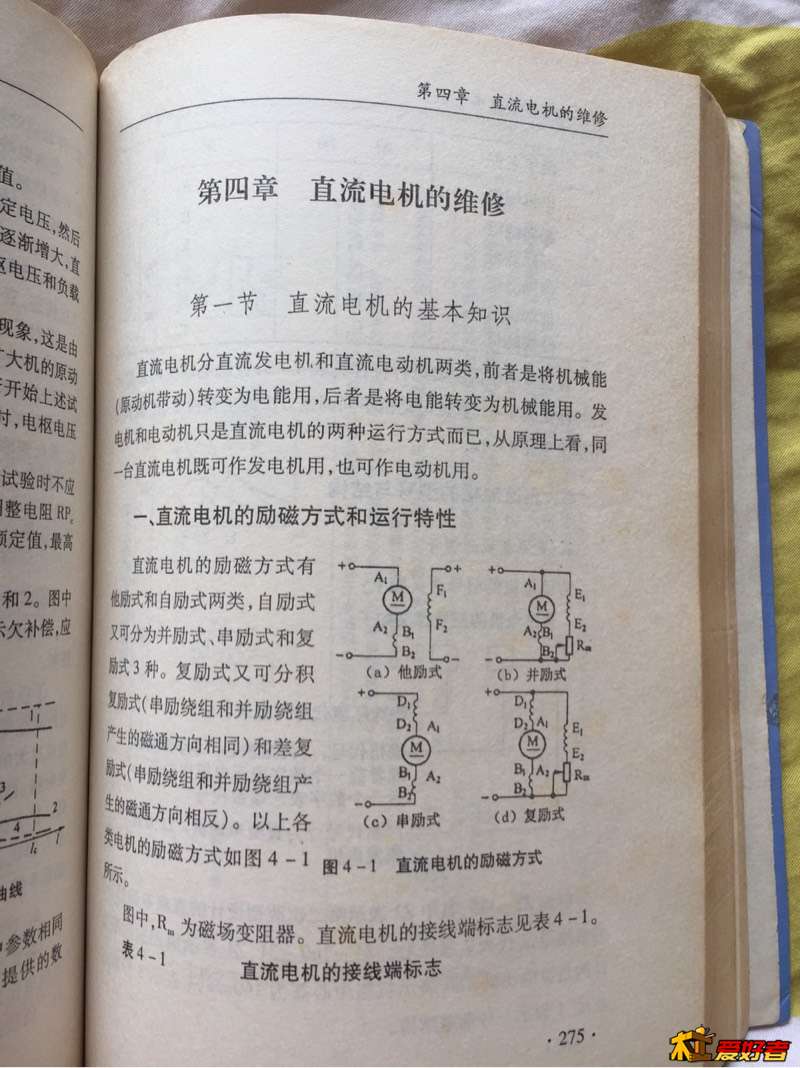 值。
定电压,然后
逐渐增大,直
枢电压和负载
现象,这是由
扩大机的原动
开始上述试
时,电枢电压
试验时不应
调整电阻RPc
额定值,最高
和2。图中
示欠补偿,应
3
2
4
曲线
参数相同
提供的数
第四章 直流电机的维修
第四章 直流电机的维修
第一节 直流电机的基本知识
直流电机分直流发电机和直流电动机两类,前者是将机械能
(原动机带动)转变为电能用,后者是将电能转变为机械能用。发
电机和电动机只是直流电机的两种运行方式而已,从原理上看,同
一台直流电机既可作发电机用,也可作电动机用。
一、直流电机的励磁方式和运行特性
直流电机的励磁方式有
他励式和自励式两类,自励式
又可分为并励式、串励式和复
励式3种。复励式又可分积
复励式(串励绕组和并励绕组
产生的磁通方向相同)和差复
励式(串励绕组和并励绕组产
生的磁通方向相反)。以上各
类电机的励磁方式如图4-1
所示。
+ A1 M A2 B1 B2 - + F1 F2 -
(a)他励式
+ A1 M A2 B1 B2 - E1 E2 Rm
(b)并励式
+ D1 D2 A1 M B1 A2 B2 -
(c)串励式
+ D1 D2 A1 M B1 A2 B2 - E1 E2 Rm
(d)复励式
图4-1 直流电机的励磁方式
图中,Rm为磁场变阻器。直流电机的接线端标志见表4-1。
表4-1 直流电机的接线端标志
·275·
爱好者